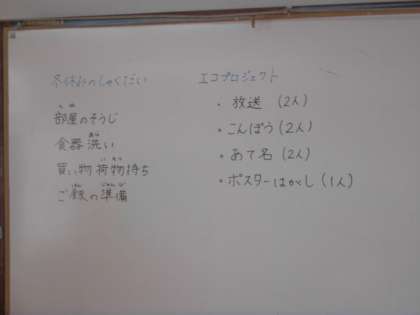 冬休みのしゅくだい
部屋のそうじ
食器洗い
買い物荷物持ち
ご飯の準備
エコプロジェクト
・放送（2人）
・こんぽう（2人）
・あて名（2人）
・ポスターはがし（1人）